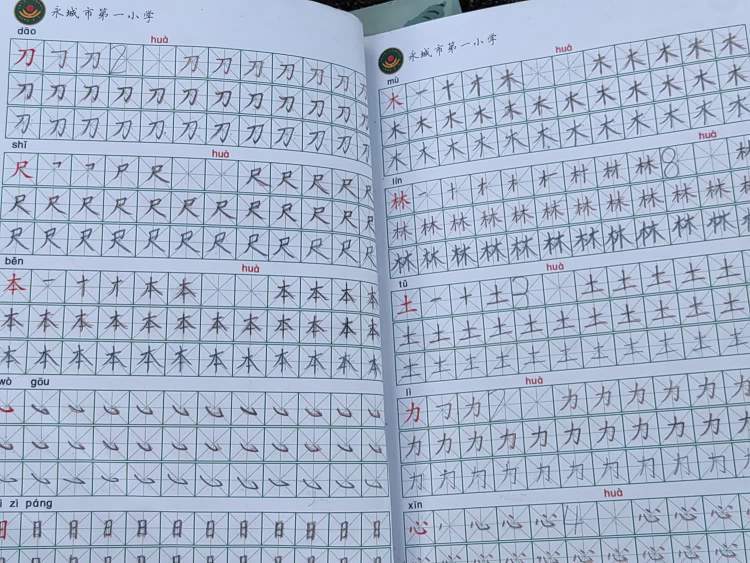 永城市第一小学
dāo huà
刀 ㇆ 刀 2 刀 刀 刀 刀 刀 刀 刀
刀 刀 刀 刀 刀 刀 刀 刀 刀 刀 刀 刀
刀 刀 刀 刀 刀 刀 刀 刀 刀 刀 刀 刀
shǐ huà
尺 ㇕ コ 尸 尺 尺 尺 尺 尺 尺
尺 尺 尺 尺 尺 尺 尺 尺 尺 尺 尺 尺
尺 尺 尺 尺 尺 尺 尺 尺 尺 尺 尺 尺
běn huà
本 一 十 才 本 本 本 本 本 本
本 本 本 本 本 本 本 本 本 本 本 本
本 本 本 本 本 本 本 本 本 本 本 本
wò gōu
㇃ ㇃ ㇃ ㇃ ㇃ ㇃ ㇃ ㇃ ㇃ ㇃ ㇃ ㇃
㇃ ㇃ ㇃ ㇃ ㇃ ㇃ ㇃ ㇃ ㇃ ㇃ ㇃ ㇃
㇃ ㇃ ㇃ ㇃ ㇃ ㇃ ㇃ ㇃ ㇃ ㇃ ㇃ ㇃
zì páng
日 日 日 日 日 日 日 日 日 日 日 日
永城市第一小学
mù huà
木 一 十 才 木 木 木 木 木 木
木 木 木 木 木 木 木 木 木 木 木 木
木 木 木 木 木 木 木 木 木 木 木 木
lín huà
林 一 十 才 木 木 村 林 林 8 林
林 林 林 林 林 林 林 林 林 林 林 林
林 林 林 林 林 林 林 林 林 林 林 林
tǔ huà
土 一 十 土 3 土 土 土 土 土 土
土 土 土 土 土 土 土 土 土 土 土 土
土 土 土 土 土 土 土 土 土 土 土 土
lì huà
力 ㇆ 力 2 力 力 力 力 力 力 力
力 力 力 力 力 力 力 力 力 力 力 力
力 力 力 力 力 力 力 力 力 力 力 力
xīn huà
心 丶 心 心 心 4 心 心 心 心